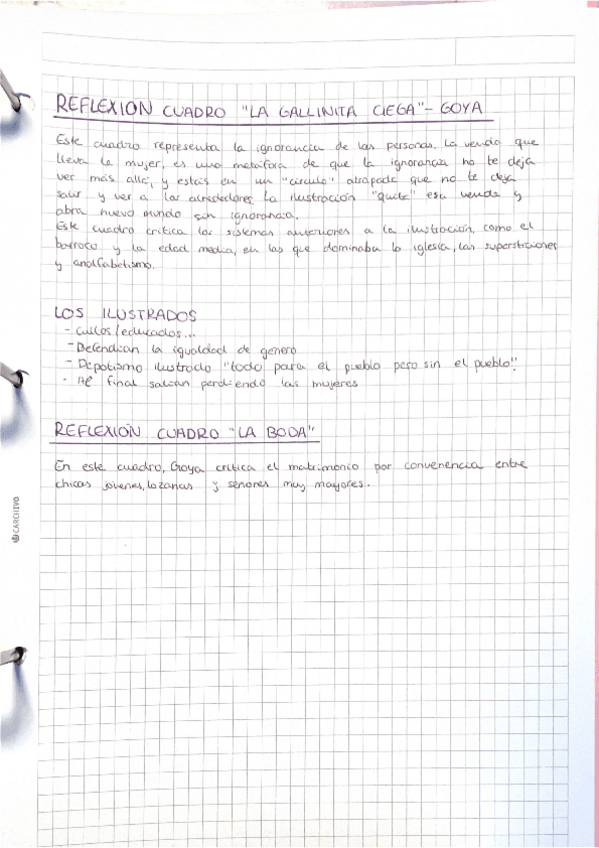 REFLEXIÓN CUADRO "LA GALLINITA CIEGA" - GOYA
Este cuadro representa la ignorancia de las personas. La venda que
lleva la mujer, es una metáfora de que la ignorancia no te deja
ver más allá, y estás en un "círculo" atrapado que no te deja
salir y ver a los alrededores. La ilustración "quita" esa venda y
abra nuevo mundo sin ignorancia.
Este cuadro critica los sistemas anteriores a la ilustración, como el
barroco y la edad media, en las que dominaba la iglesia, las supersticiones
y analfabetismo.
LOS ILUSTRADOS
- Cultos/educados...
- Defendían la igualdad de genero
- Dépotismo ilustrado "todo para el pueblo pero sin el pueblo".
- Al final salían perdiendo las mujeres
REFLEXIÓN CUADRO "LA BODA"
En este cuadro, Goya critica el matrimonio por convenencia entre
chicas jovenes, lozanas y señores muy mayores.
CARCHIVO